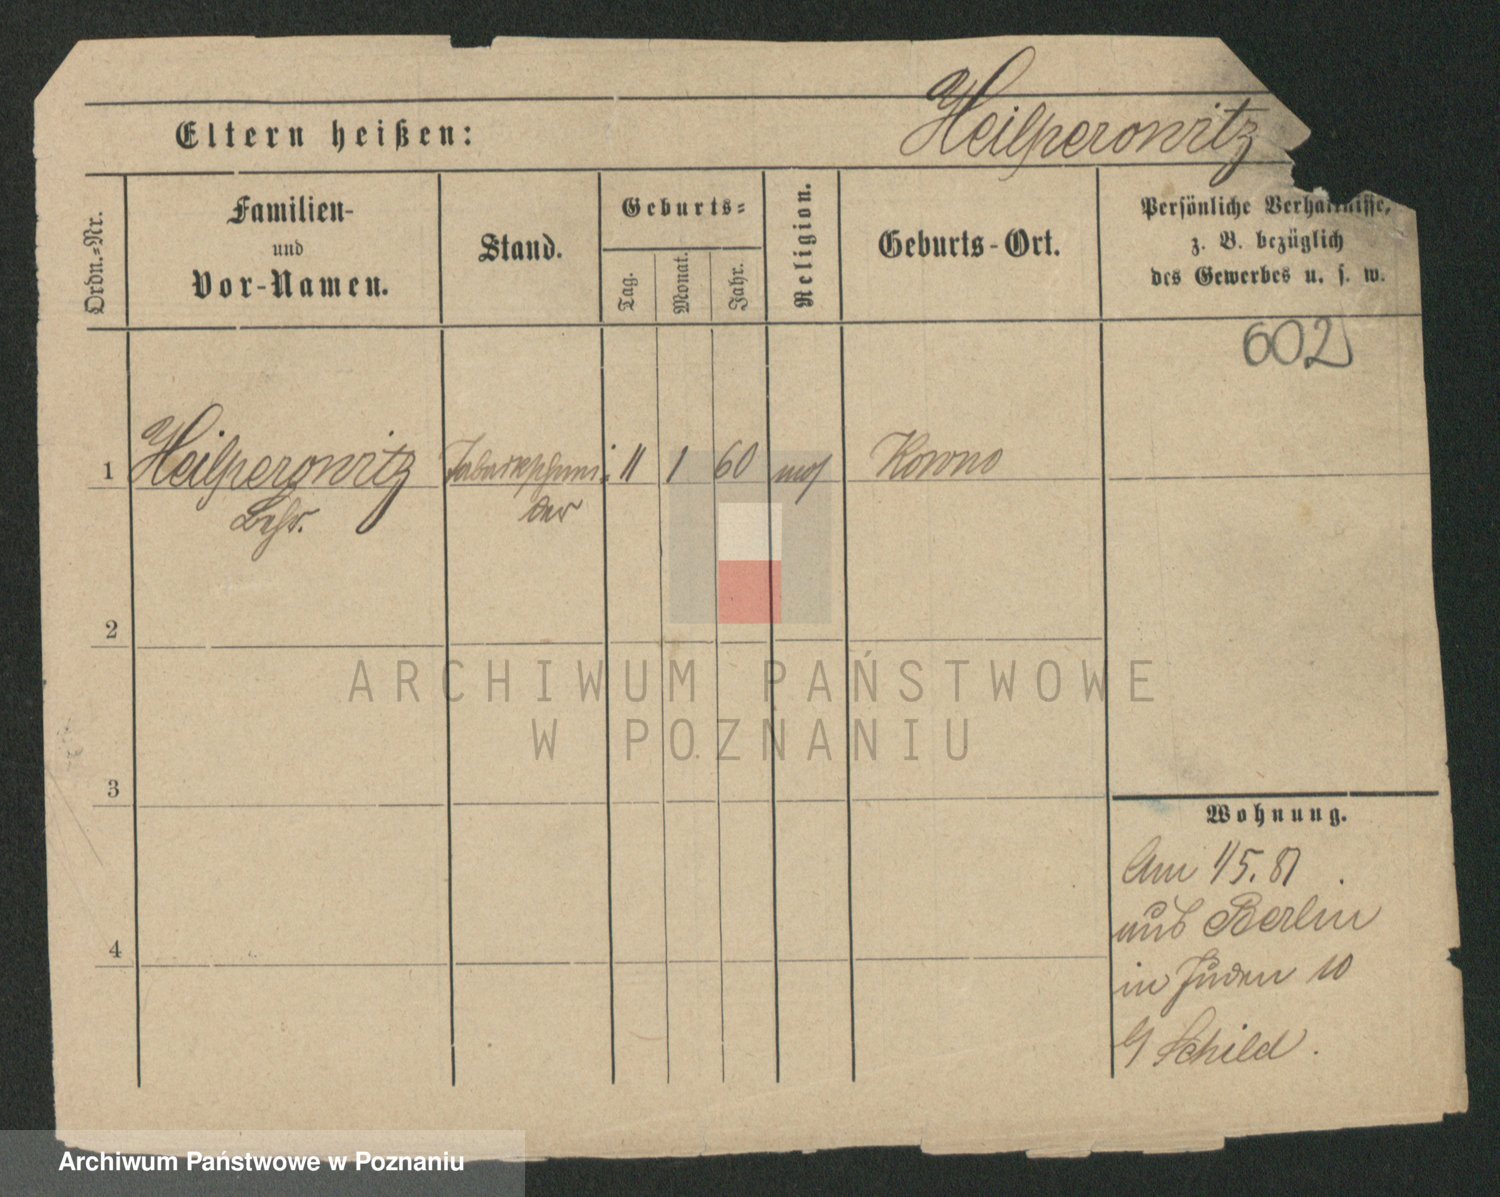 Heilperowitz
Eltern heißen:
Ordn.-Nr.
Familien-
und
Vor-Namen.
Stand.
Geburts-
Tag.
Monat.
Jahr.
Religion.
Geburts-Ort.
Persönliche Verhältnisse,
z. B. bezüglich
des Gewerbes u. s. w.
602
1 Heilperowitz Tabakschnei- 11 1 60 mos Kowno
Behr. der
2
3
4
Wohnung.
Am 1/5. 81
aus Berlin
in Juden 10
Schild.
ARCHIWUM PAŃSTWOWE
W POZNANIU
Archiwum Państwowe w Poznaniu